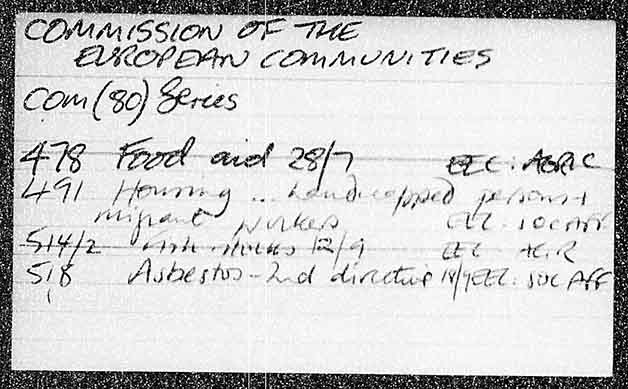 COMMISSION OF THE
EUROPEAN COMMUNITIES
COM (80) Series
478 Food aid 28/7 EEC. AGRIC
491 Housing ... handicapped persons +
migrant workers EEC. SOC AFF
514/2 Fish stocks 12/9 EEC AGR
518 Asbestos - 2nd directive 18/9 EEC: SOC AFF